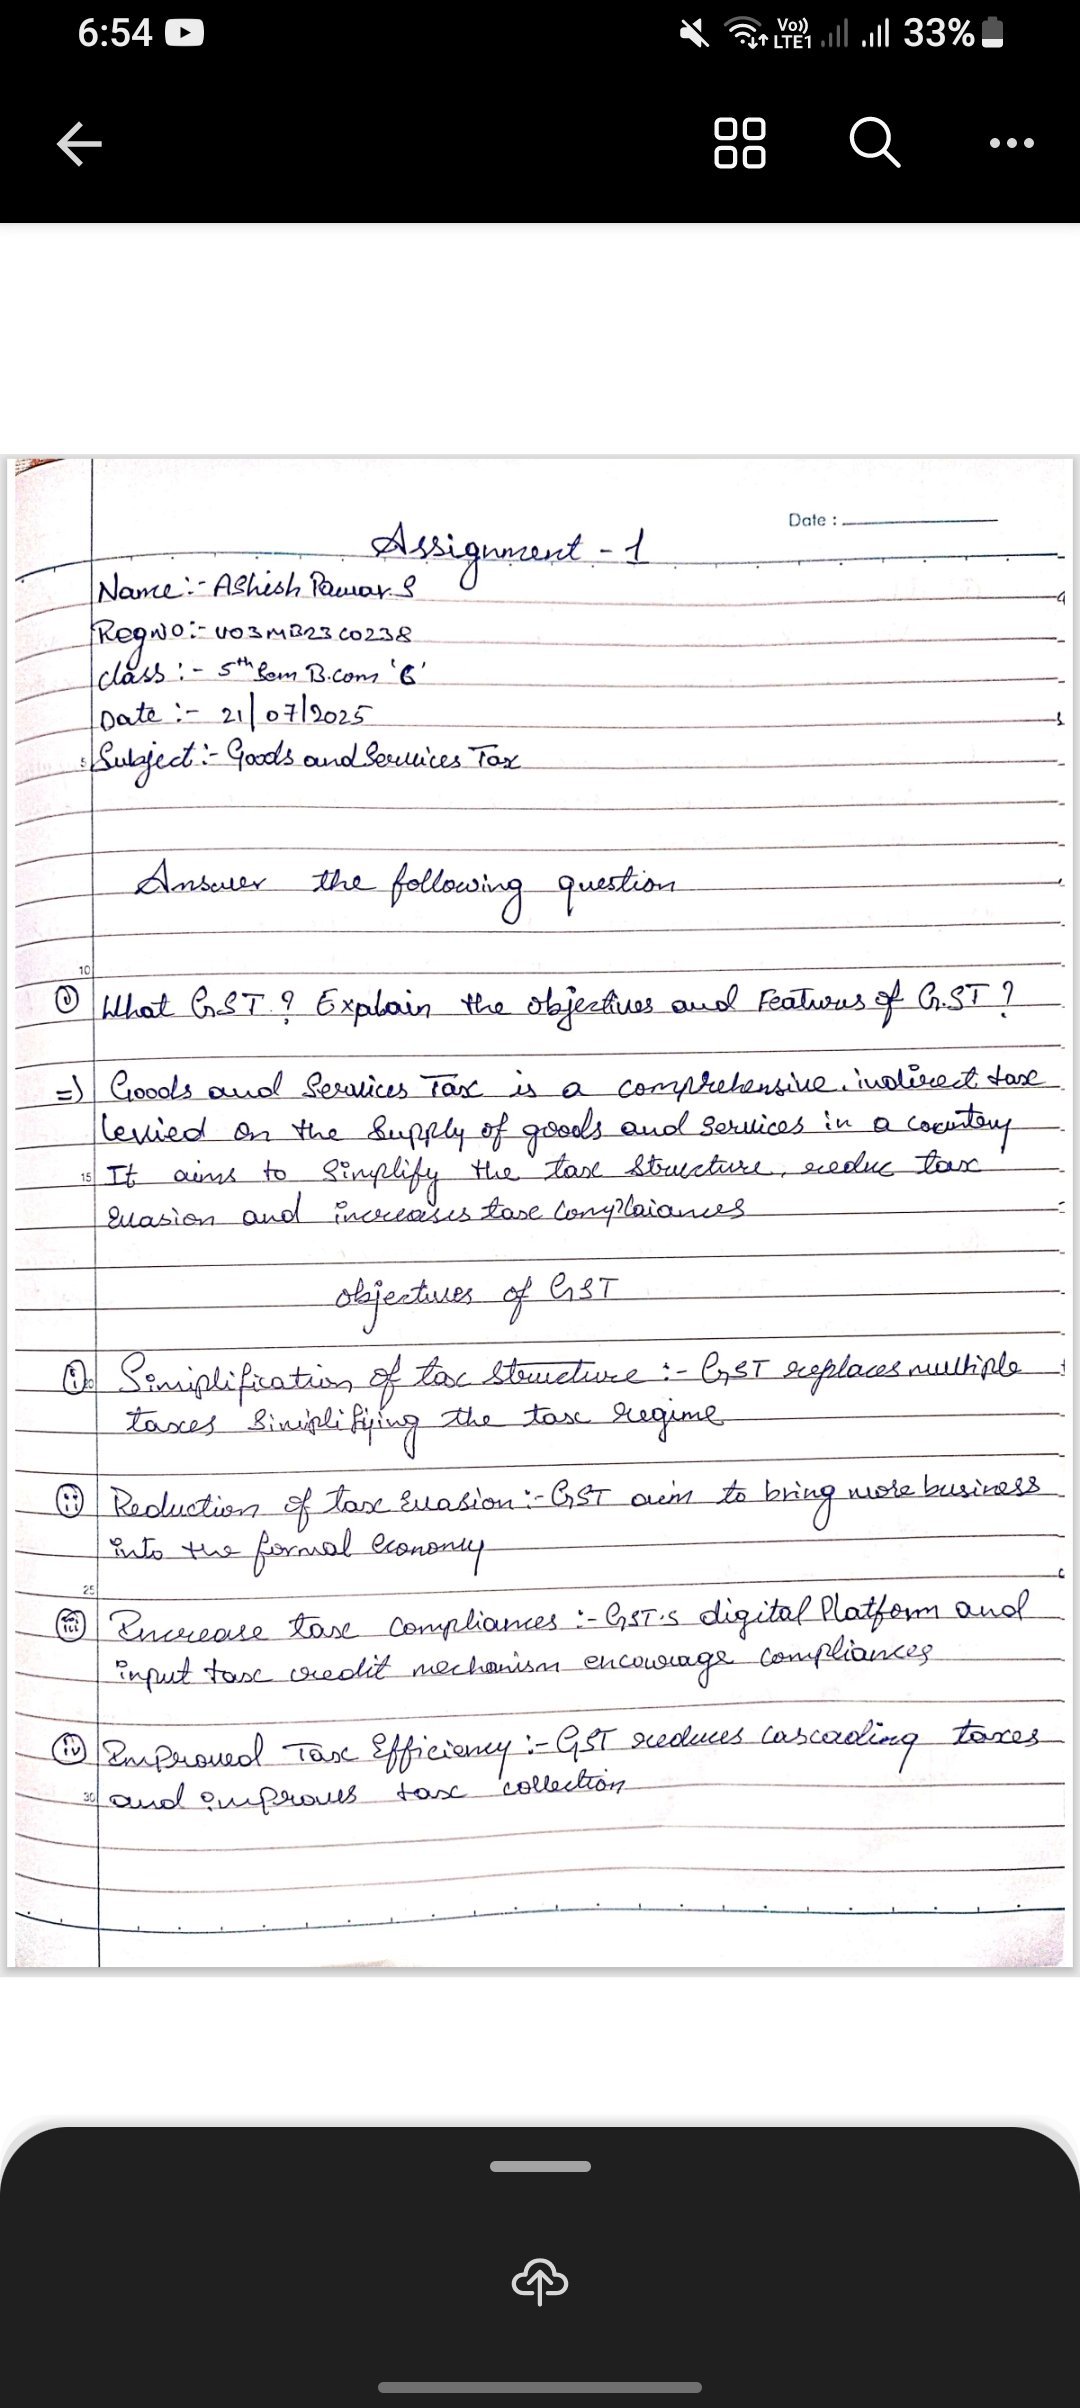 6:54
Vo))
LTE1
33%
Date :
Assignment - 1
Name:- Ashish Pawar. S
RegNo:- U03MB23C0238
class :- 5th Sem B.com 'G'
Date :- 21/07/2025
5 Subject:- Goods and Services Tax
Answer the following question
10
① What GST ? Explain the objectives and Features of G.ST ?
=) Goods and Services Tax is a comprehensive, indirect tax
levied on the Supply of goods and services in a country
15 It aims to Simplify the tax structure, reduc tax
Evasion and increases tax complaiances
objectives of GST
i) Simiplification of tax structure :- GST replaces multiple
taxes Siniplifiying the tax regime
ii) Reduction of tax Evasion:- GST aim to bring more business
into the formal economy
25
iii) Increase tax compliances :- GST's digital Platform and
input tax credit mechanism encourage compliances
iv) Improved Tax Efficiency :- GST reduces cascading taxes
30 and improves tax collection